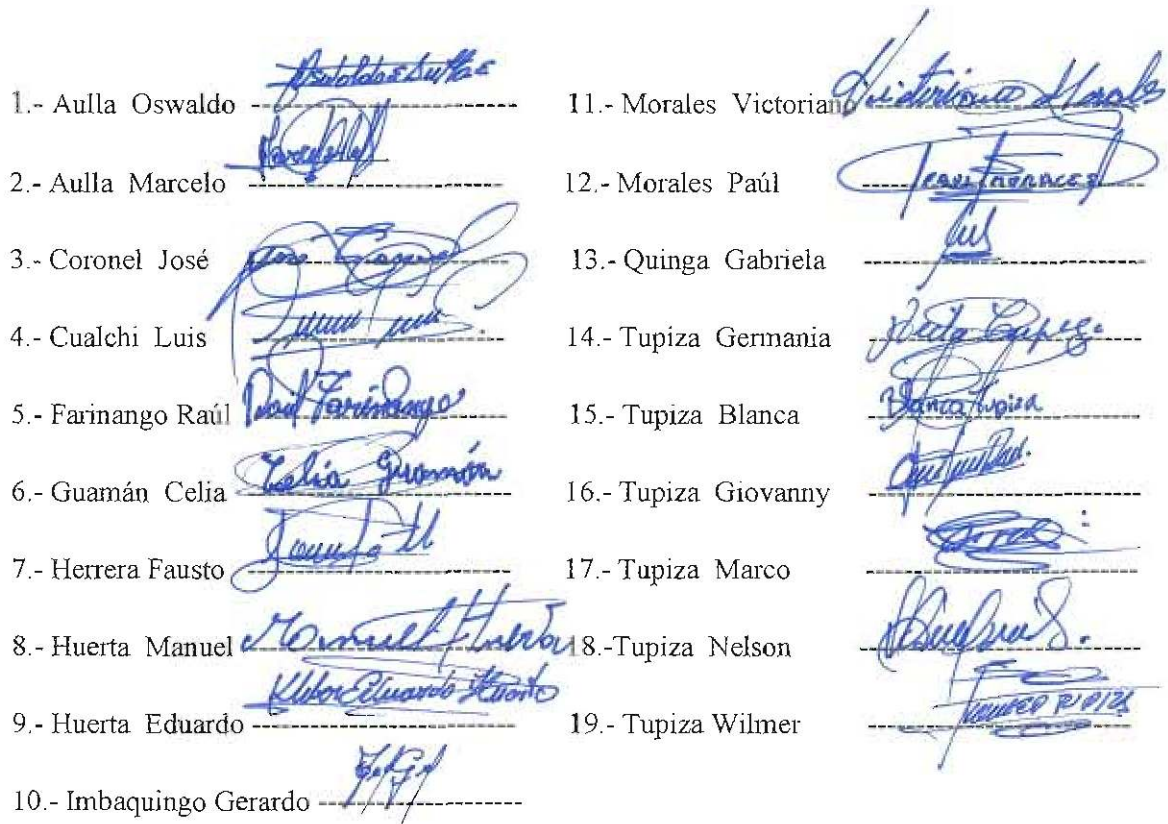 1.- Aulla Oswaldo
2.- Aulla Marcelo
3.- Coronel José
4.- Cualchi Luis
5.- Farinango Raúl Raúl Farinango
6.- Guamán Celia Celia Guamán
7.- Herrera Fausto
8.- Huerta Manuel Manuel Huerta
Kleber Eduardo Huerta
9.- Huerta Eduardo
10.- Imbaquingo Gerardo
11.- Morales Victoriano Victoriano Morales
12.- Morales Paúl Paul Morales
13.- Quinga Gabriela
14.- Tupiza Germania
15.- Tupiza Blanca Blanca Tupiza
16.- Tupiza Giovanny
17.- Tupiza Marco
18.-Tupiza Nelson
19.- Tupiza Wilmer